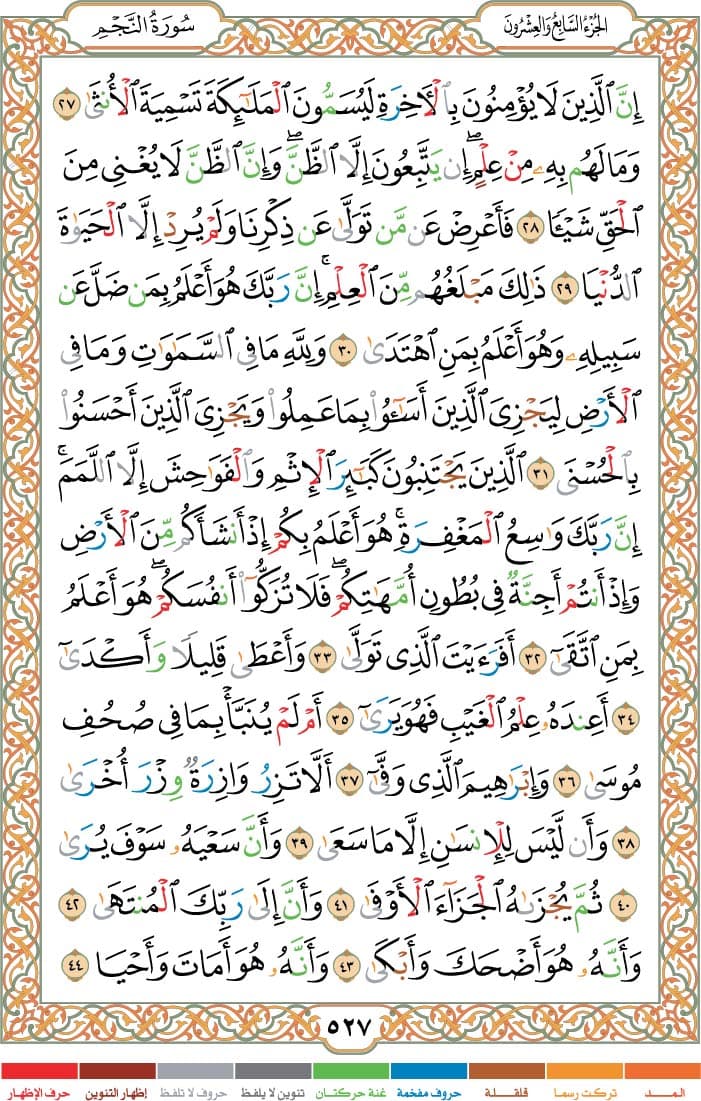 سُورَةُ النَّجْمِ
الجُزْءُ السَّابِعُ وَالعِشْرُونَ
إِنَّ ٱلَّذِينَ لَا يُؤْمِنُونَ بِٱلْأَخِرَةِ لَيُسَمُّونَ ٱلْمَلَٰٓئِكَةَ تَسْمِيَةَ ٱلْأُنثَىٰ ٢٧
وَمَا لَهُم بِهِۦ مِنْ عِلْمٍ ۖ إِن يَتَّبِعُونَ إِلَّا ٱلظَّنَّ ۖ وَإِنَّ ٱلظَّنَّ لَا يُغْنِى مِنَ
ٱلْحَقِّ شَيْـًٔا ٢٨ فَأَعْرِضْ عَن مَّن تَوَلَّىٰ عَن ذِكْرِنَا وَلَمْ يُرِدْ إِلَّا ٱلْحَيَوٰةَ
ٱلدُّنْيَا ٢٩ ذَٰلِكَ مَبْلَغُهُم مِّنَ ٱلْعِلْمِ ۚ إِنَّ رَبَّكَ هُوَ أَعْلَمُ بِمَن ضَلَّ عَن
سَبِيلِهِۦ وَهُوَ أَعْلَمُ بِمَنِ ٱهْتَدَىٰ ٣٠ وَلِلَّهِ مَا فِى ٱلسَّمَٰوَٰتِ وَمَا فِى
ٱلْأَرْضِ لِيَجْزِىَ ٱلَّذِينَ أَسَٰٓـُٔوا۟ بِمَا عَمِلُوا۟ وَيَجْزِىَ ٱلَّذِينَ أَحْسَنُوا۟
بِٱلْحُسْنَى ٣١ ٱلَّذِينَ يَجْتَنِبُونَ كَبَٰٓئِرَ ٱلْإِثْمِ وَٱلْفَوَٰحِشَ إِلَّا ٱللَّمَمَ ۚ
إِنَّ رَبَّكَ وَٰسِعُ ٱلْمَغْفِرَةِ ۚ هُوَ أَعْلَمُ بِكُمْ إِذْ أَنشَأَكُم مِّنَ ٱلْأَرْضِ
وَإِذْ أَنتُمْ أَجِنَّةٌ فِى بُطُونِ أُمَّهَٰتِكُمْ ۖ فَلَا تُزَكُّوٓا۟ أَنفُسَكُمْ ۖ هُوَ أَعْلَمُ
بِمَنِ ٱتَّقَىٰٓ ٣٢ أَفَرَءَيْتَ ٱلَّذِى تَوَلَّىٰ ٣٣ وَأَعْطَىٰ قَلِيلًا وَأَكْدَىٰٓ
٣٤ أَعِندَهُۥ عِلْمُ ٱلْغَيْبِ فَهُوَ يَرَىٰٓ ٣٥ أَمْ لَمْ يُنَبَّأْ بِمَا فِى صُحُفِ
مُوسَىٰ ٣٦ وَإِبْرَٰهِيمَ ٱلَّذِى وَفَّىٰٓ ٣٧ أَلَّا تَزِرُ وَازِرَةٌ وِزْرَ أُخْرَىٰ
٣٨ وَأَن لَّيْسَ لِلْإِنسَٰنِ إِلَّا مَا سَعَىٰ ٣٩ وَأَنَّ سَعْيَهُۥ سَوْفَ يُرَىٰ
٤٠ ثُمَّ يُجْزَىٰهُ ٱلْجَزَآءَ ٱلْأَوْفَىٰ ٤١ وَأَنَّ إِلَىٰ رَبِّكَ ٱلْمُنتَهَىٰ ٤٢
وَأَنَّهُۥ هُوَ أَضْحَكَ وَأَبْكَىٰ ٤٣ وَأَنَّهُۥ هُوَ أَمَاتَ وَأَحْيَا ٤٤
٥٢٧
المـــد تركت رسما قلقـــلة حروف مفخمة غنة حركتان تنوين لا يلفظ حروف لا تلفظ إظهار التنوين حرف الإظهار